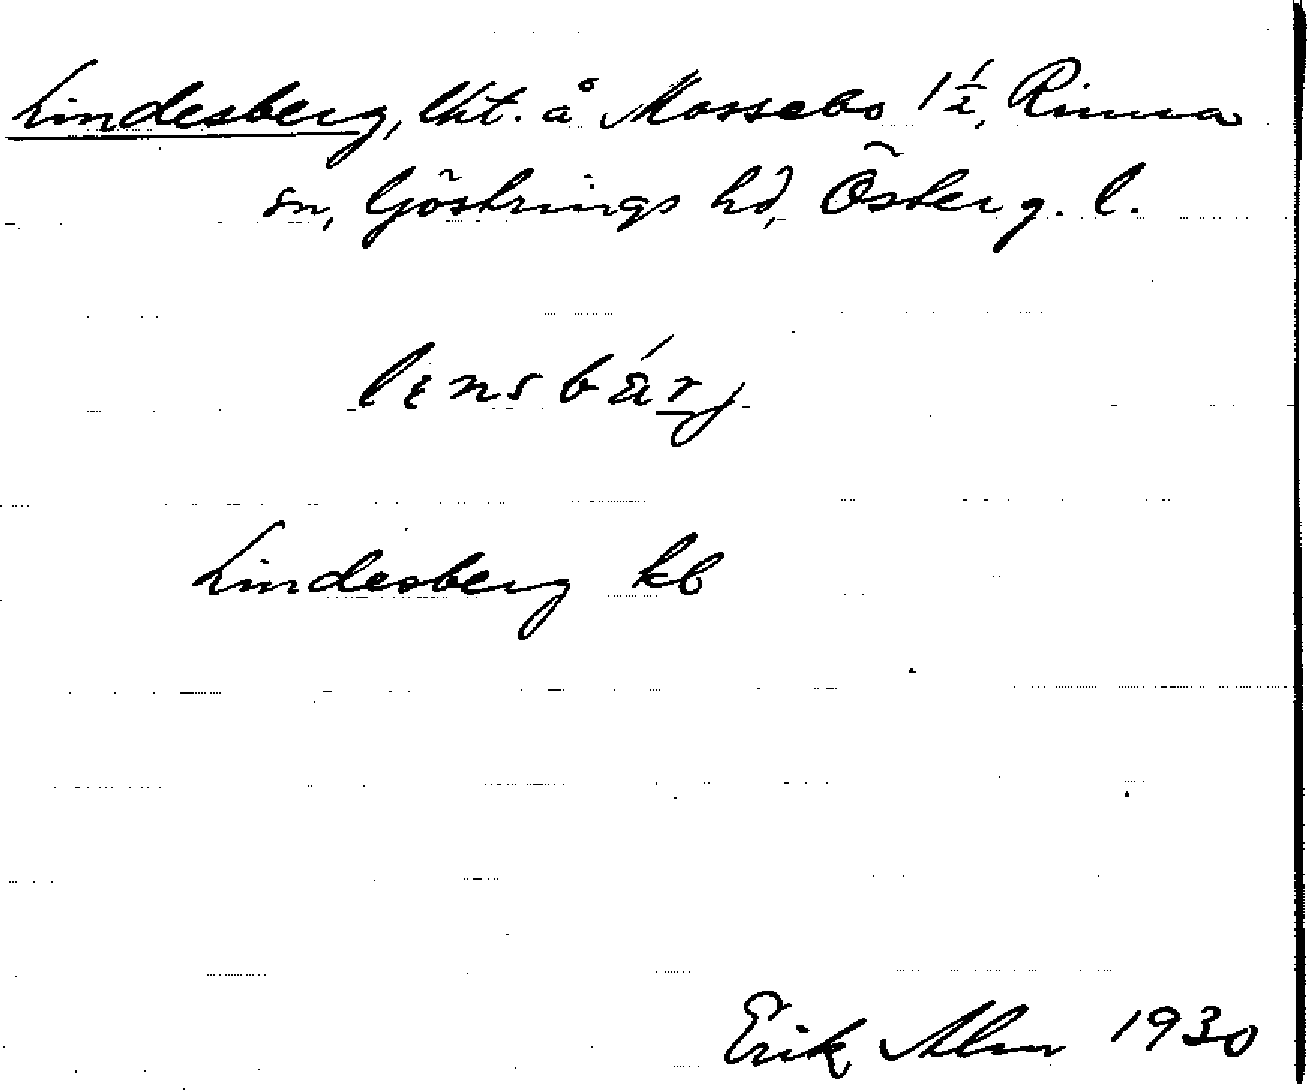 Lindesberg, lht. å Mossebo 1 1/2, Rinna
sn, Göstrings hd, Österg. l.
lensbärj
Lindesberg kb
Erik Alm 1930